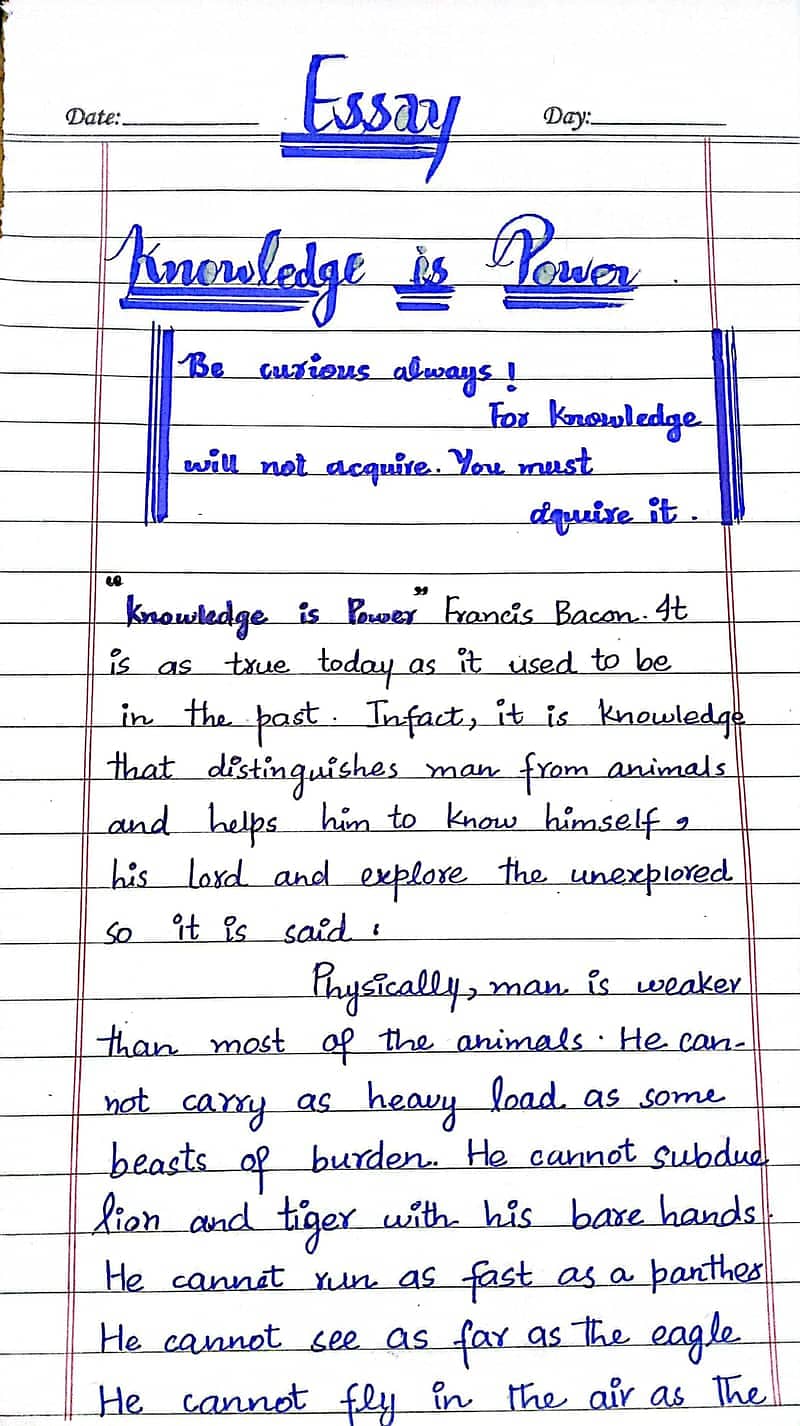 Date:
Essay
Day:
Knowledge is Power.
Be curious always!
For knowledge
will not acquire. You must
aquire it.
"Knowledge is Power" Francis Bacon. It
is as true today as it used to be
in the past. Infact, it is knowledge
that distinguishes man from animals
and helps him to know himself,
his Lord and explore the unexplored
so it is said :
Physically, man is weaker
than most of the animals. He can-
not carry as heavy load as some
beasts of burden. He cannot subdue
lion and tiger with his bare hands.
He cannot run as fast as a panther
He cannot see as far as the eagle
He cannot fly in the air as the